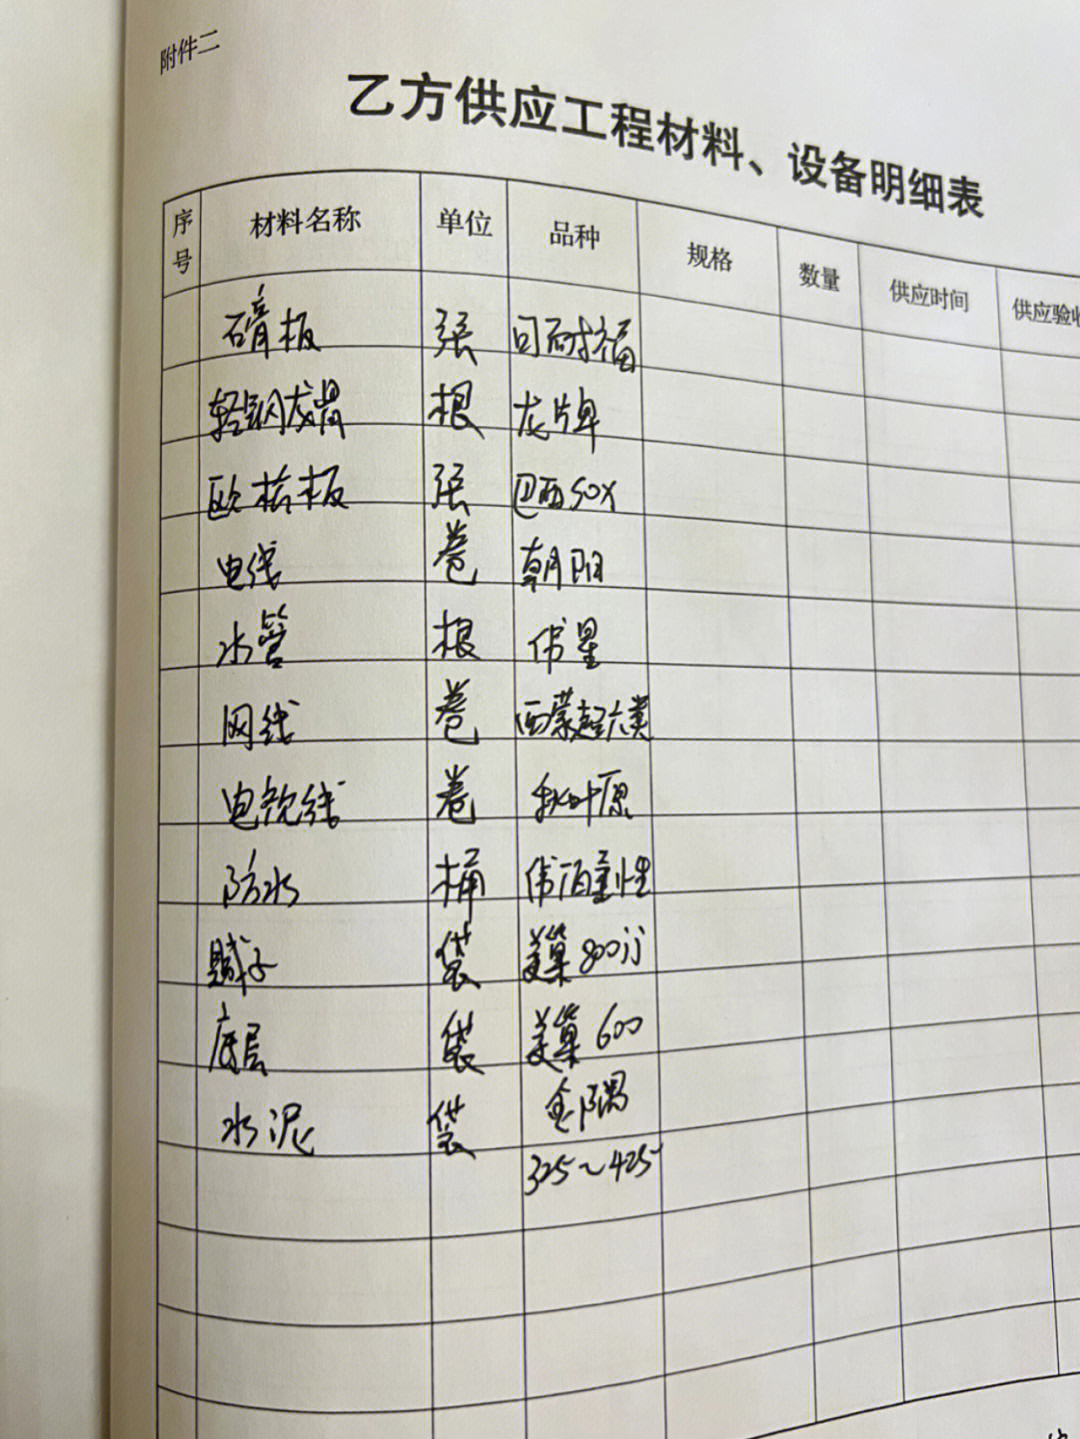 附件二
乙方供应工程材料、设备明细表
序号 材料名称 单位 品种 规格 数量 供应时间 供应验收
石膏板 张 可耐福
轻钢龙骨 根 龙牌
欧松板 张 巴西SOX
电线 卷 朝阳
水管 根 伟星
网线 卷 西蒙超六类
电视线 卷 秋叶原
防水 桶 伟伯 柔性
腻子 袋 美巢800
底层 袋 美巢600
水泥 袋 金隅
325~425